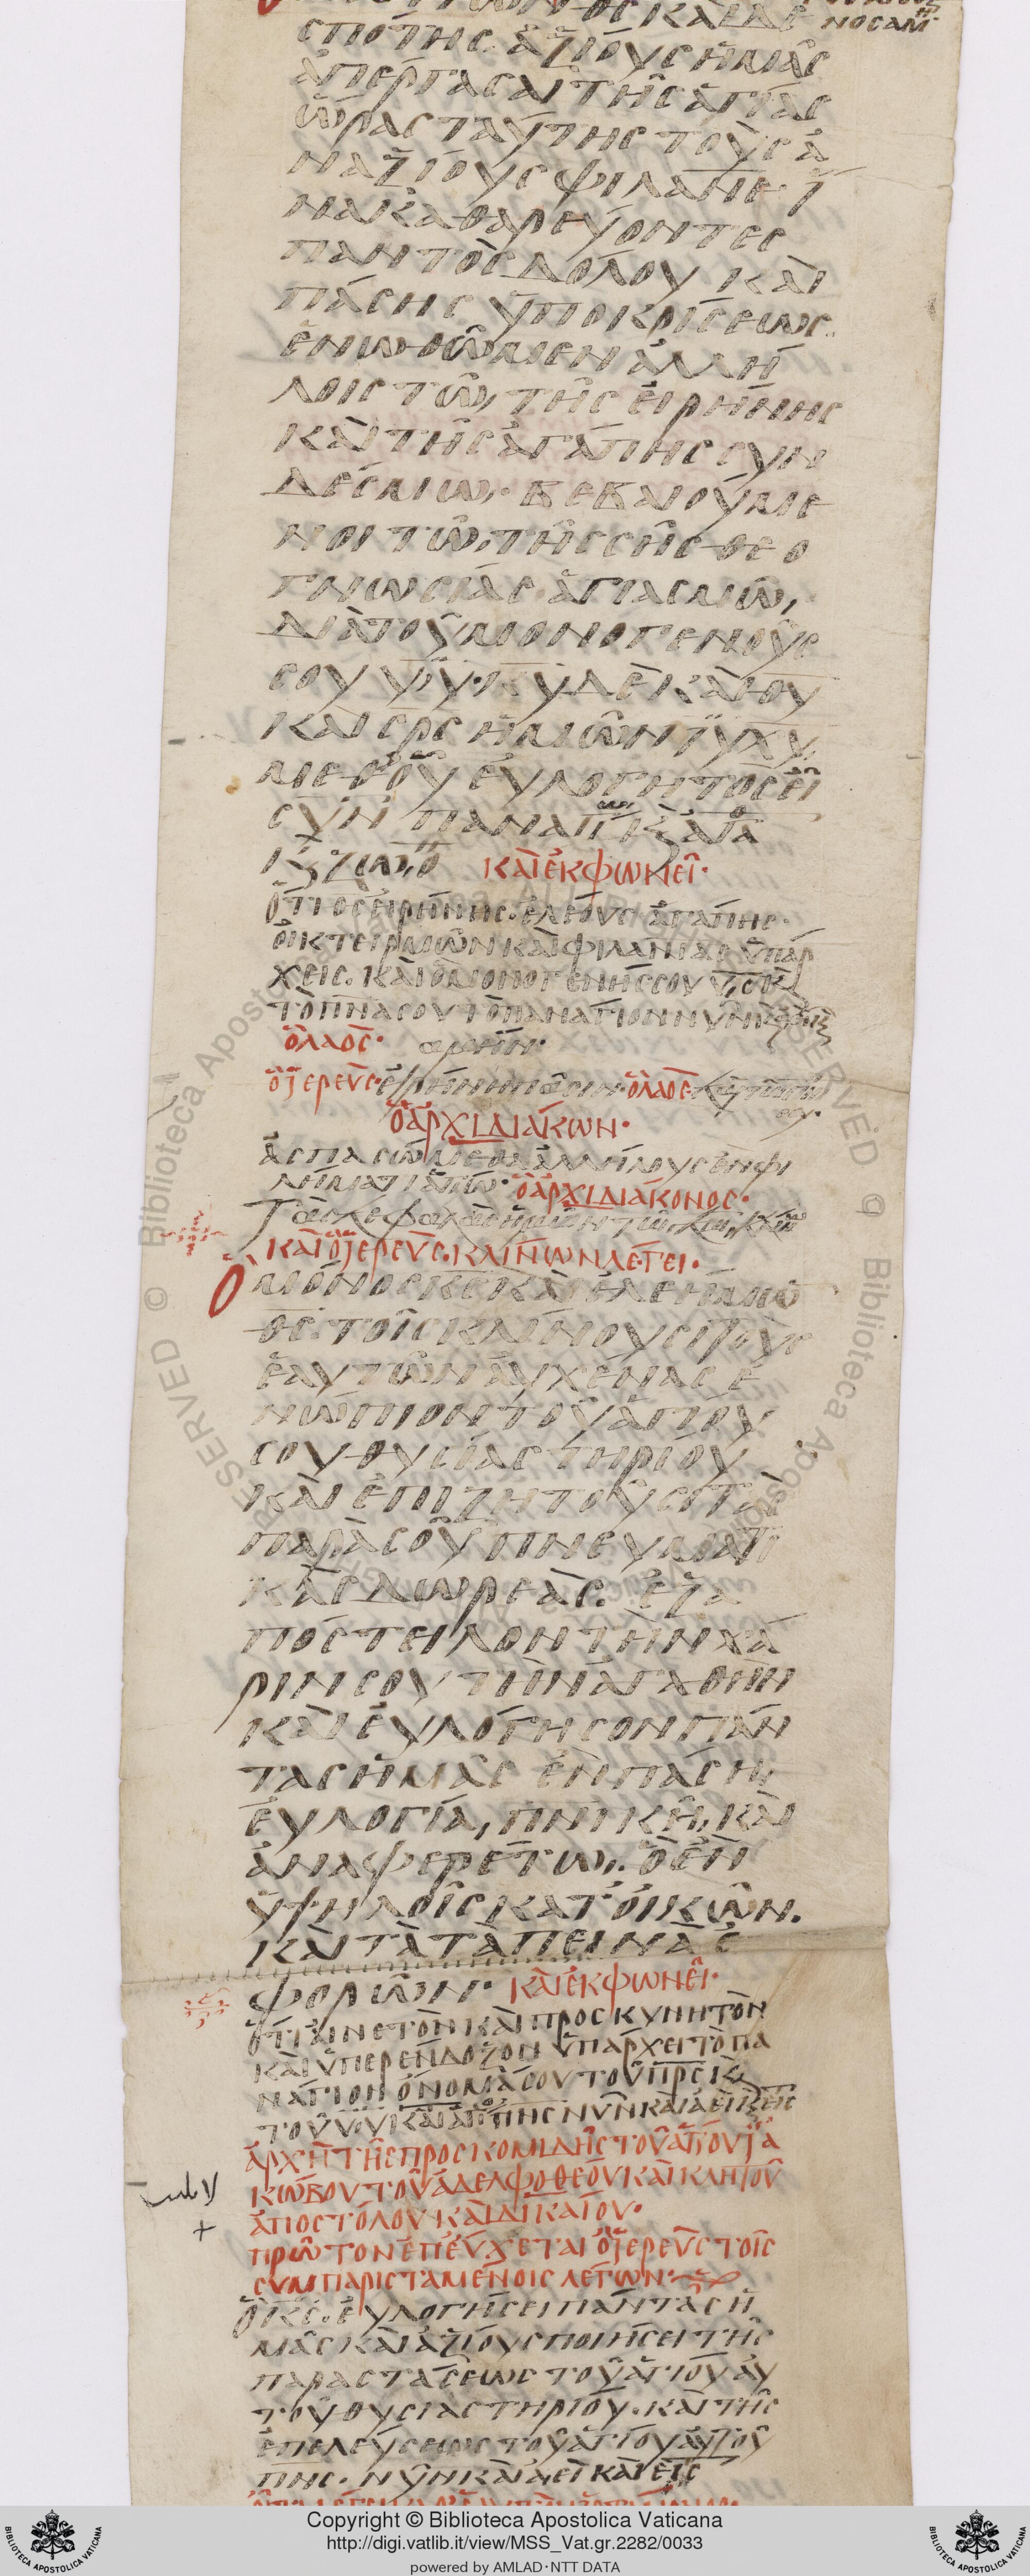 ΝΟCΑΜ
CΠΟΤΗC ἀξίους ἡμᾶς
ἀπέργασαι τῆς ἁγίας
ὥρας ταύτης τοὺς ἀ
ναξίους φιλανε· ἵ
να καθαρεύοντες
παντὸς δόλου καὶ
πάσης ὑποκρίσεως
ἑνωθῶμεν ἀλλή
λοις τῶ, τῆς εἰρήνης
καὶ τῆς ἀγάπης συν
δέσμω,· βεβαιούμε
νοι τῶ, τῆς σῆς θεο
γνωσίας ἁγιασμῶ,
διὰ τοῦ μονογενοῦς
σου υἱυ· κυ δὲ καὶ θυ
καὶ σρς ἡμῶν ιυ χυ
μεθ' οὗ εὐλογητὸς εἶ
σὺν
καὶ ἐκφωνεῖ·
ὅτι θς εἰρήνης· ἐλέους ἀγάπης·
οἰκτειρμῶν καὶ φιλανίας ὑπάρ
χεις. καὶ ὁ μονογενής σου υς κ
τὸ πνα σου τὸ πανάγιον νῦν
ὁ λαός· ἀμήν·
ὁ ἱερεύς· εἰρήνη πᾶσιν· ὁ λαός·
ὁ ἀρχιδιάκων·
ἀσπασώμεθα ἀλλήλους ἐν φι
λήματι ἁγίω· ὁ ἀρχιδιάκονος·
Τὰς κεφαλὰς ἡμῶν τῶ κω κλίνω
καὶ ὁ ἱερεύς. κλίνων λέγει.
Ὁ μόνος κς καὶ ἐλεήμω
θς· τοῖς κλίνουσι τοὺς
ἑαυτῶν αὐχένας ἐ
νώπιον τοῦ ἁγίου
σου θυσιαστηρίου
καὶ ἐπιζητοῦσι τὰς
παρὰ σοῦ πνευματι
κὰς δωρεάς. ἐξα
πόστειλον τὴν χά
ριν σου τὴν ἀγαθὴν
καὶ εὐλόγησον πάν
τας ἡμᾶς ἐν πάση,
εὐλογία, πνικῆ, καὶ
ἀναφερέτω,. ὁ ἐν
ὑψηλοῖς κατοικῶν.
καὶ τὰ ταπεινὰ ἐ
φορῶν· καὶ ἐκφωνεῖ·
ὅτι αἰνετὸν καὶ προσκυνητὸν
καὶ ὑπερένδοξον ὑπάρχει τὸ πα
νάγιον ὄνομά σου τοῦ πρς κ
τοῦ υἱυ καὶ ἁγίου πνς νῦν καὶ ἀεὶ κ εἰς
ἀρχὴ τῆς προσκομιδῆς τοῦ ἁγίου ἰα
κώβου τοῦ ἀδελφοθεόυ καὶ κλητοῦ
ἀποστόλου καὶ δικαίου·
πρῶτον ἐπεύχεται ὁ ἱερεὺς τοῖς
συμπαρισταμένοις λέγων·
ὁ κς· εὐλογήσει πάντας ἡ
μᾶς καὶ ἀξίους ποιήσει τῆς
παραστάσεως τοῦ ἁγίου αὐ
τοῦ θυσιαστηρίου· καὶ τῆς
ἐπελεύσεως τοῦ ἁγίου αὐτοῦ
πνς· νῦν καὶ ἀεὶ καὶ εἰς
Copyright © Biblioteca Apostolica Vaticana
http://digi.vatlib.it/view/MSS_Vat.gr.2282/0033
powered by AMLAD·NTT DATA